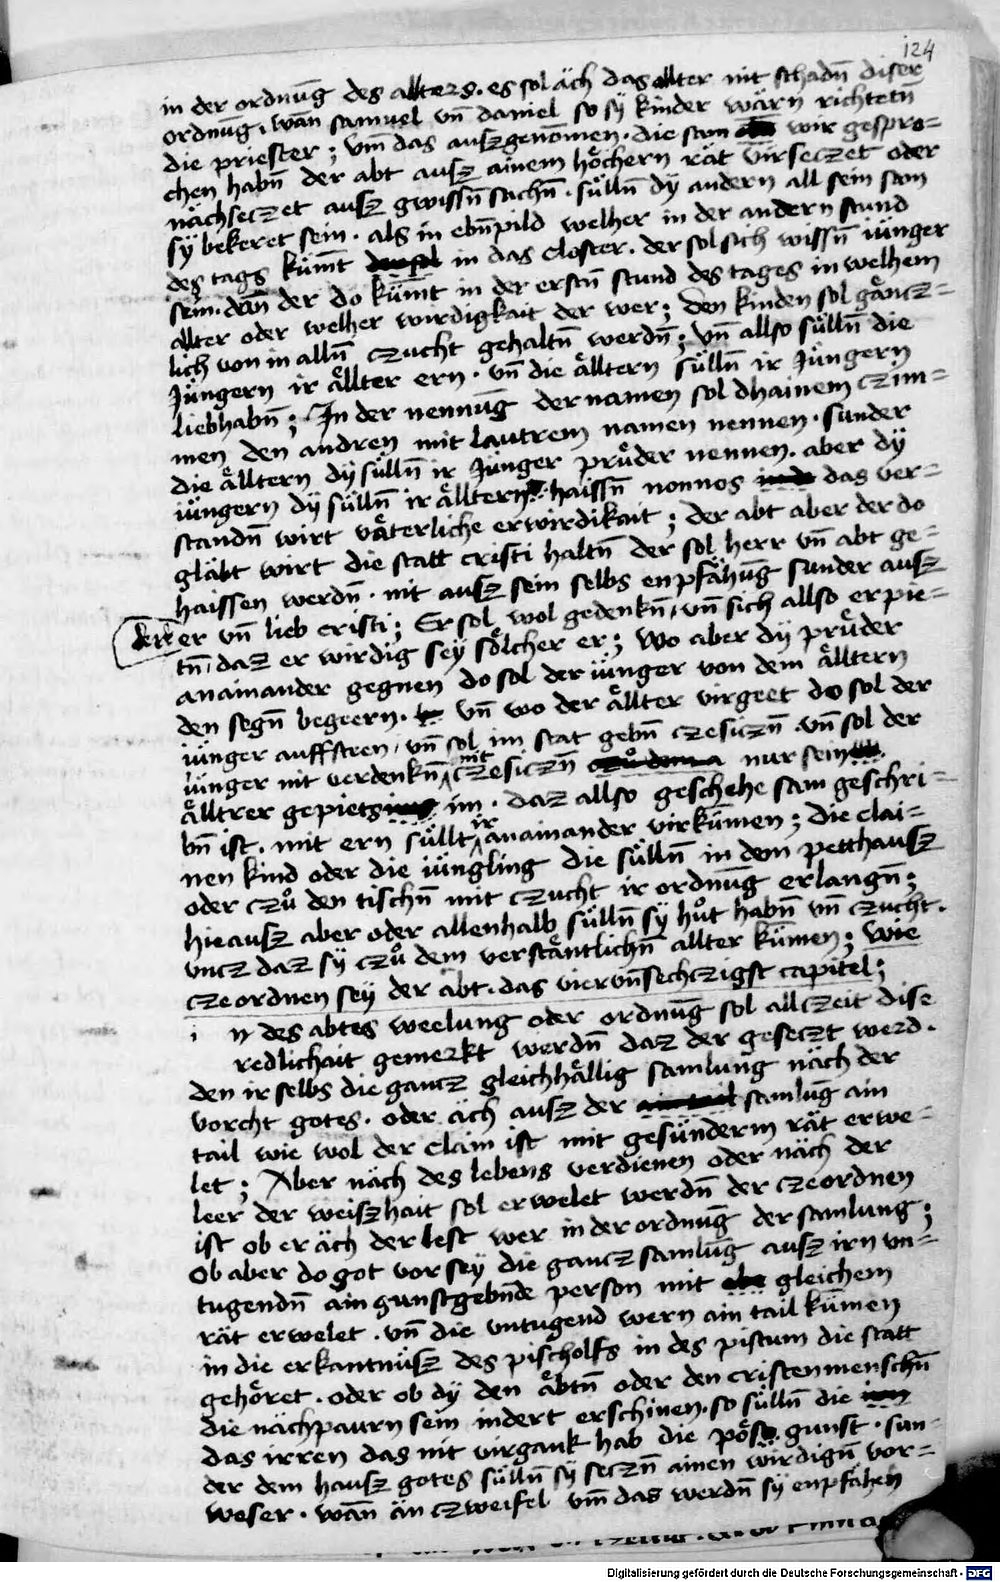 124
in der ordnūg des allters. es sol äch das allter nit schadn̄ diser
ordnūg. wan̄ samuel vn̄ daniel so sÿ kinder wärn richtetn̄
die priester; vm̄ das auszgenōmen. die sam wir gespro=
chen habn̄ der abt ausz ainem höchern rät virseczet oder
nächseczet ausz gwissn̄ sachn̄. sülln̄ dÿ andern all sein sam
sÿ bekeret sein. als in ebn̄pild welher in der andern stund
des tags küm̄t in das closter. der sol sich wissn̄ iünger
sein. dan̄ der do küm̄t in der erstn̄ stund des tages in welhem
allter oder welher wirdigkait der wer; den kinden sol gäncz=
lich von in alln̄ czucht gehaltn̄ werdn̄; vn̄ allso sülln̄ die
Jüngern ir ällter ern. vn̄ die älltern sülln̄ ir Jüngern
liebhabn̄; In der nennūg der namen sol dhainem czim=
men den andren mit lautrem namen nennen. sunder
die älltern dÿ sülln̄ ir Jünger prüder nennen. aber dÿ
iüngern dÿ sülln̄ ir älltern haissn̄ nonnos das ver=
standn̄ wirt väterliche erwirdikait; der abt aber der do
gläbt wirt die statt cristi haltn̄ der sol herr vn̄ abt ge=
haissen werdn̄. nit ausz sein selbs enpfähūg sunder ausz
er vn̄ lieb cristi; Er sol wol gedenkn̄ vn̄ sich allso erpie=
tn̄ daz er wirdig seÿ sölcher er; Wo aber dÿ prüder
anainander gegnen do sol der iünger von dem älltern
den segn̄ begeern. vn̄ wo der ällter virgeet do sol der
iünger auffsten vn̄ sol im stat gebn̄ czesiczn̄. vn̄ sol der
iünger nit verdenkn̄ mit czesiczn̄ czů dem nur sein
älltrer gepiets im. daz allso geschehe sam geschri=
bn̄ ist. mit ern süllt ir anainander virkümen; die clai=
nen kind oder die iüngling die sülln̄ in dem petthausz
oder czů den tischn̄ mit czucht ir ordnūg erlangn̄;
hieausz aber oder allenhalb sülln̄ sÿ hůt habn̄ vn̄ czucht.
vncz daz sÿ czů dem verstäntlichn̄ allter kümen; wie
czeordnen seÿ der abt. das viervn̄sechczigst capitel;
i n des abtes weelung oder ordnūg sol allczeit dise
redlichait gemerkt werdn̄ daz der geseczt werd.
den ir selbs die gancz gleichhällig samlung näch der
vorcht gotes. oder äch ausz der samlūg ain
tail wie wol der clain ist mit gesünderm rät erwe=
let; Aber näch des lebens verdienen oder näch der
leer der weiszhait sol erwelet werdn̄ der czeordnen
ist ob er äch der lest wer in der ordnūg der samlung;
Ob aber do got vor seÿ die gancz samlūg ausz irn vn=
tugendn̄ ain gunstgebn̄de person mit gleichem
rät erwelet. vn̄ die vntugend wern ain tail kümen
in die erkantnüsz des pischolfs in des pistum die statt
gehöret. oder ob dÿ den äbtn̄ oder den cristenmenschn̄
die nächpaurn sein indert erschinen. so sülln̄ die
das irren das nit virgank hab die pösz gunst. sun=
der dem hausz gotes sülln̄ sÿ seczn̄ ainen wirdign̄ vor=
weser. wan̄ än czweifel vm̄ das werdn̄ sÿ enpfähen
Digitalisierung gefördert durch die Deutsche Forschungsgemeinschaft - DFG